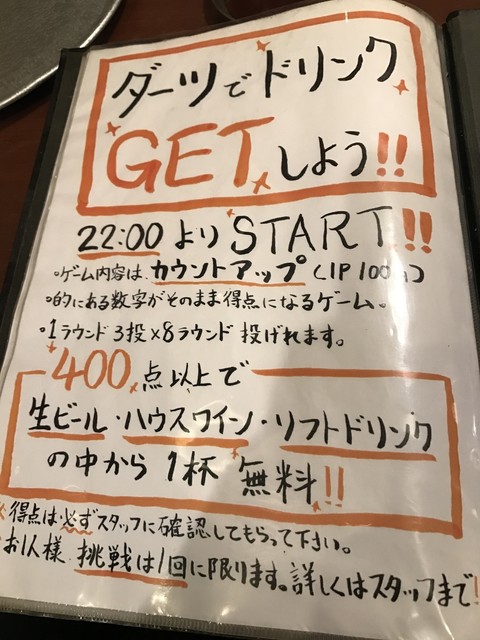 ダーツでドリンク
GETしよう!!
22:00よりSTART!!
・ゲーム内容は、カウントアップ (1P 100円)
・的にある数字がそのまま得点になるゲーム。
・1ラウンド3投×8ラウンド投げれます。
400点以上で
生ビール・ハウスワイン・ソフトドリンク
の中から1杯無料!!
得点は必ずスタッフに確認してもらって下さい。
お1人様、挑戦は1回に限ります。詳しくはスタッフまで!